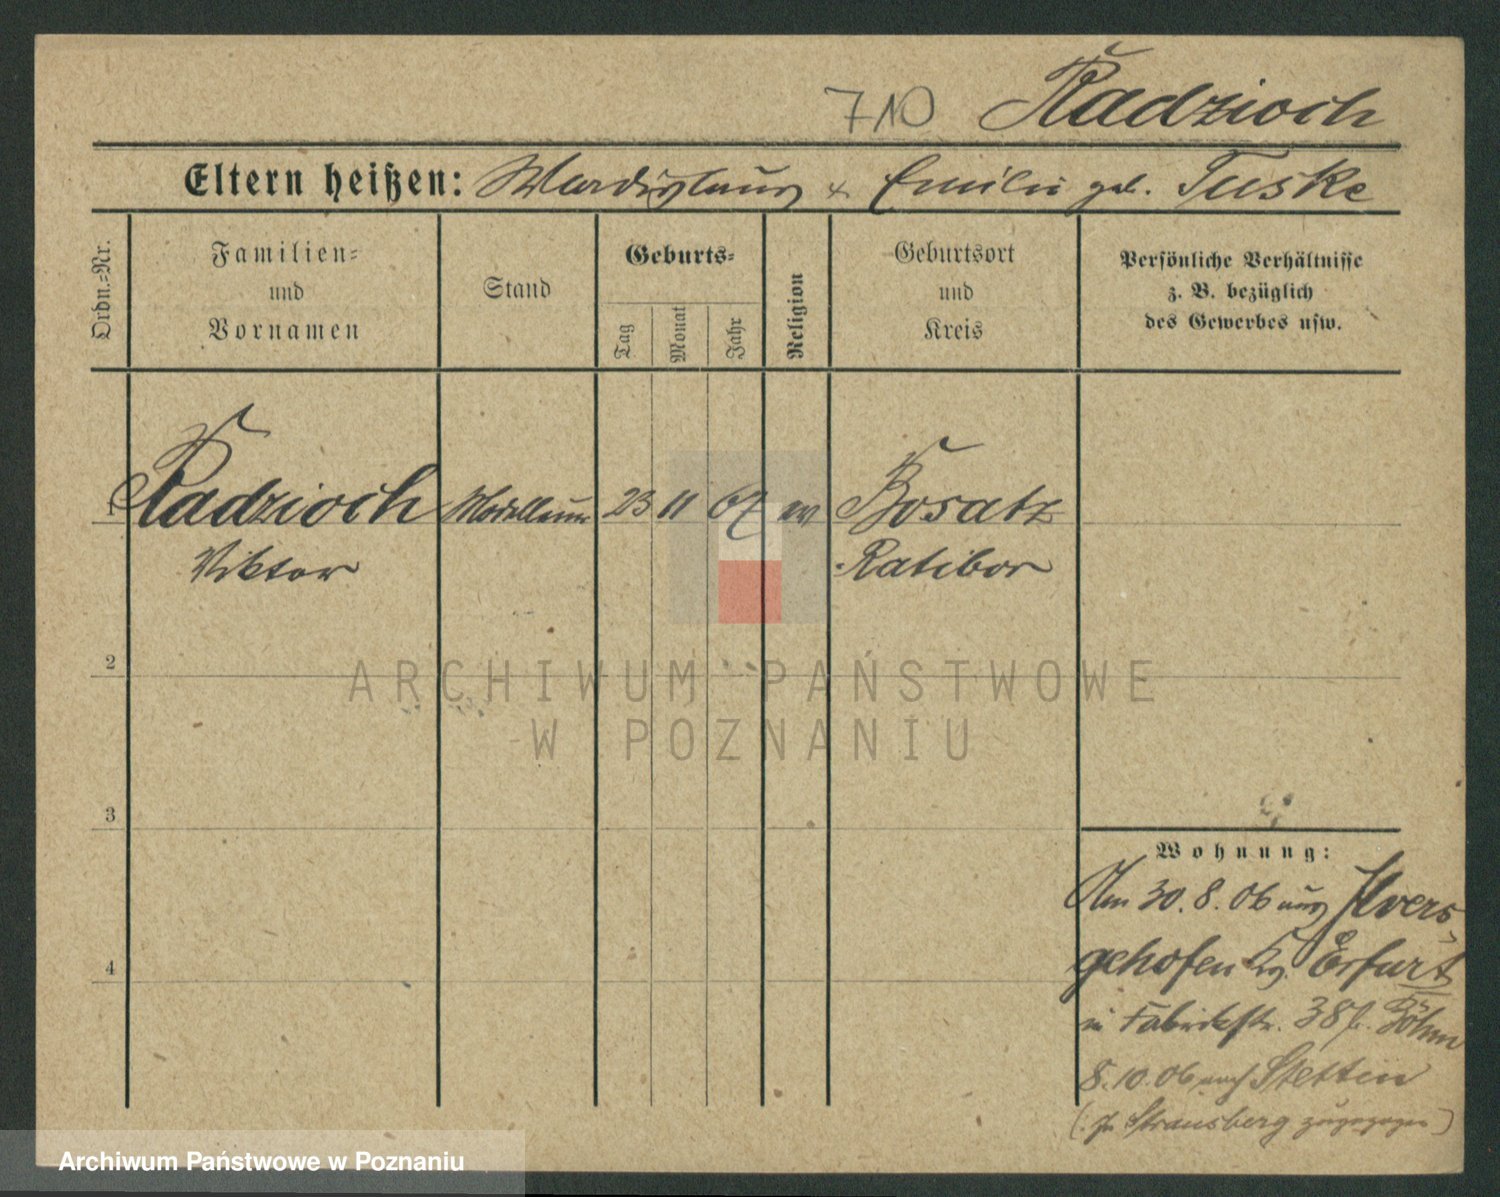 710 Radzioch
Eltern heißen: Wladislaus & Emilie geb. Tuske
Ordn.-Nr.
Familien- und Vornamen
Stand
Geburts-
Tag
Monat
Jahr
Religion
Geburtsort und Kreis
Persönliche Verhältnisse
z. B. bezüglich
des Gewerbes usw.
1 Radzioch 23 11 67 ev Bosatz
Viktor Ratibor
2
3
4
Wohnung:
Am 30.8.06 aus Ilvers-
gehofen Erfurt
in Fabrikstr. 38 b. Böhm
8.10.06 nach Stettin
(: In Strausberg zugezogen)
ARCHIWUM PAŃSTWOWE
W POZNANIU
Archiwum Państwowe w Poznaniu